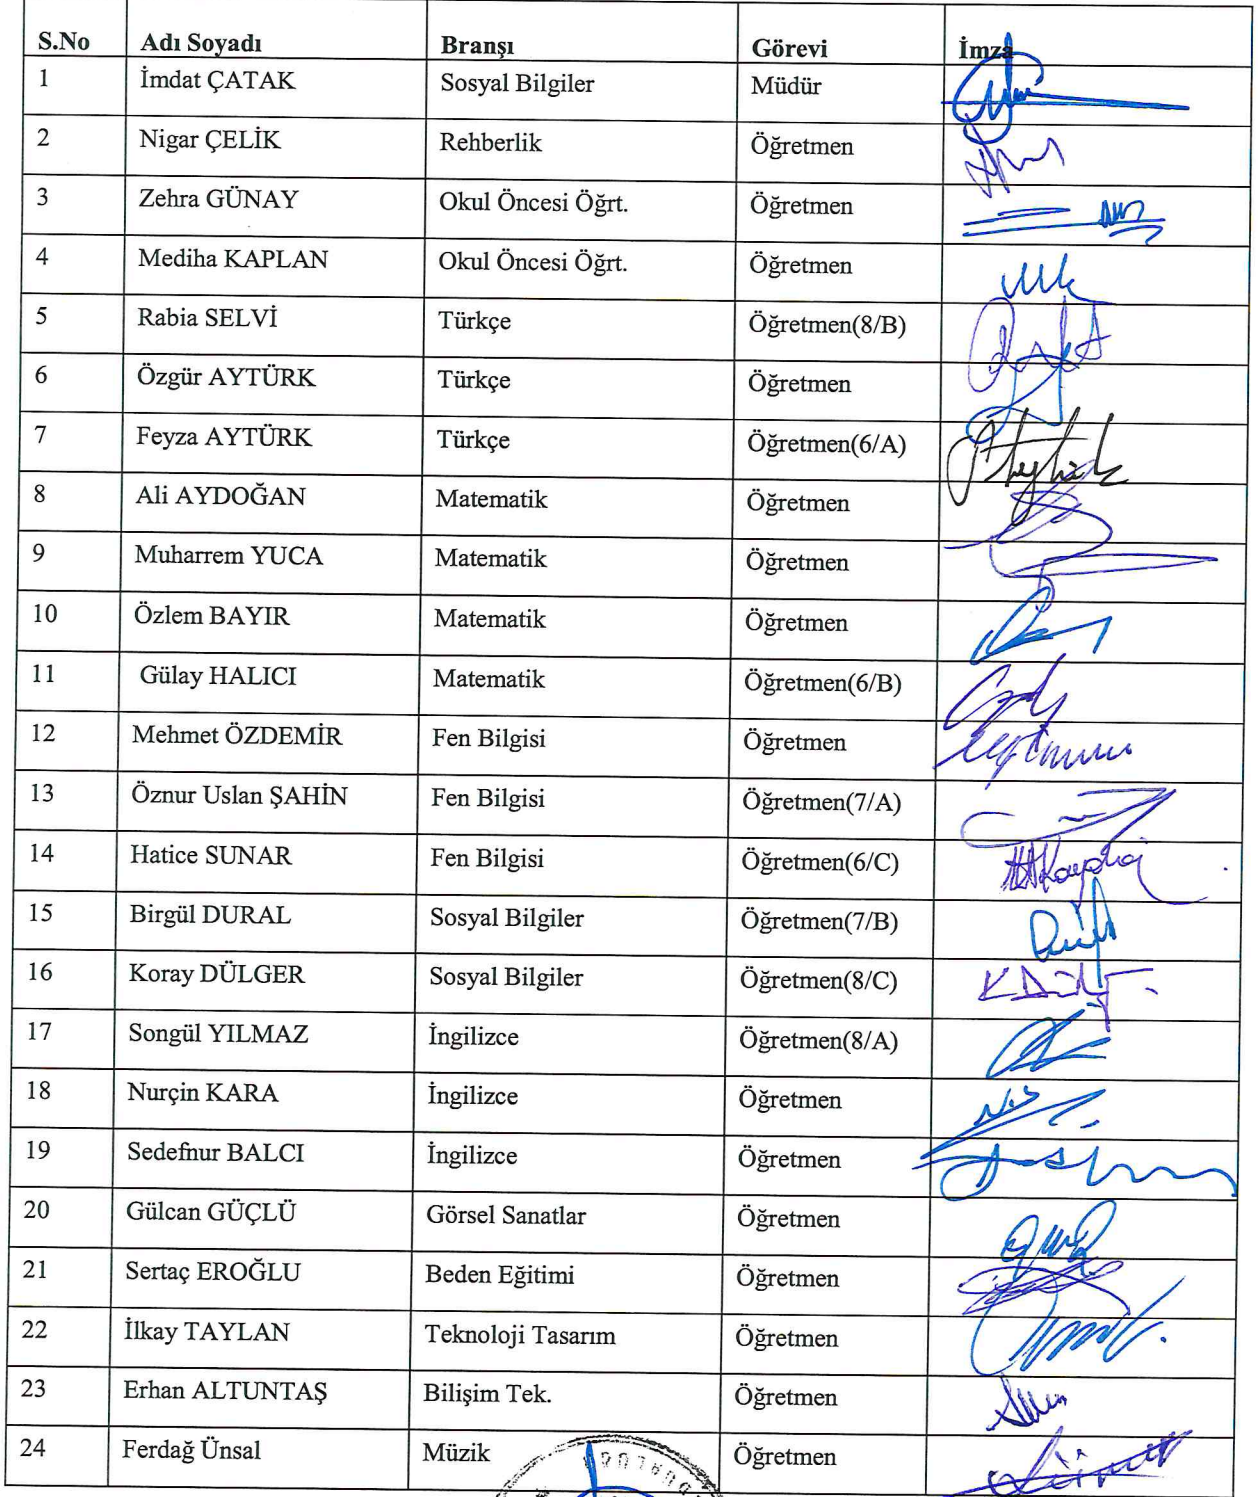 S.No Adı Soyadı Branşı Görevi İmza
1 İmdat ÇATAK Sosyal Bilgiler Müdür
2 Nigar ÇELİK Rehberlik Öğretmen
3 Zehra GÜNAY Okul Öncesi Öğrt. Öğretmen
4 Mediha KAPLAN Okul Öncesi Öğrt. Öğretmen
5 Rabia SELVİ Türkçe Öğretmen(8/B)
6 Özgür AYTÜRK Türkçe Öğretmen
7 Feyza AYTÜRK Türkçe Öğretmen(6/A)
8 Ali AYDOĞAN Matematik Öğretmen
9 Muharrem YUCA Matematik Öğretmen
10 Özlem BAYIR Matematik Öğretmen
11 Gülay HALICI Matematik Öğretmen(6/B)
12 Mehmet ÖZDEMİR Fen Bilgisi Öğretmen
13 Öznur Uslan ŞAHİN Fen Bilgisi Öğretmen(7/A)
14 Hatice SUNAR Fen Bilgisi Öğretmen(6/C)
15 Birgül DURAL Sosyal Bilgiler Öğretmen(7/B)
16 Koray DÜLGER Sosyal Bilgiler Öğretmen(8/C)
17 Songül YILMAZ İngilizce Öğretmen(8/A)
18 Nurçin KARA İngilizce Öğretmen
19 Sedefnur BALCI İngilizce Öğretmen
20 Gülcan GÜÇLÜ Görsel Sanatlar Öğretmen
21 Sertaç EROĞLU Beden Eğitimi Öğretmen
22 İlkay TAYLAN Teknoloji Tasarım Öğretmen
23 Erhan ALTUNTAŞ Bilişim Tek. Öğretmen
24 Ferdağ Ünsal Müzik Öğretmen